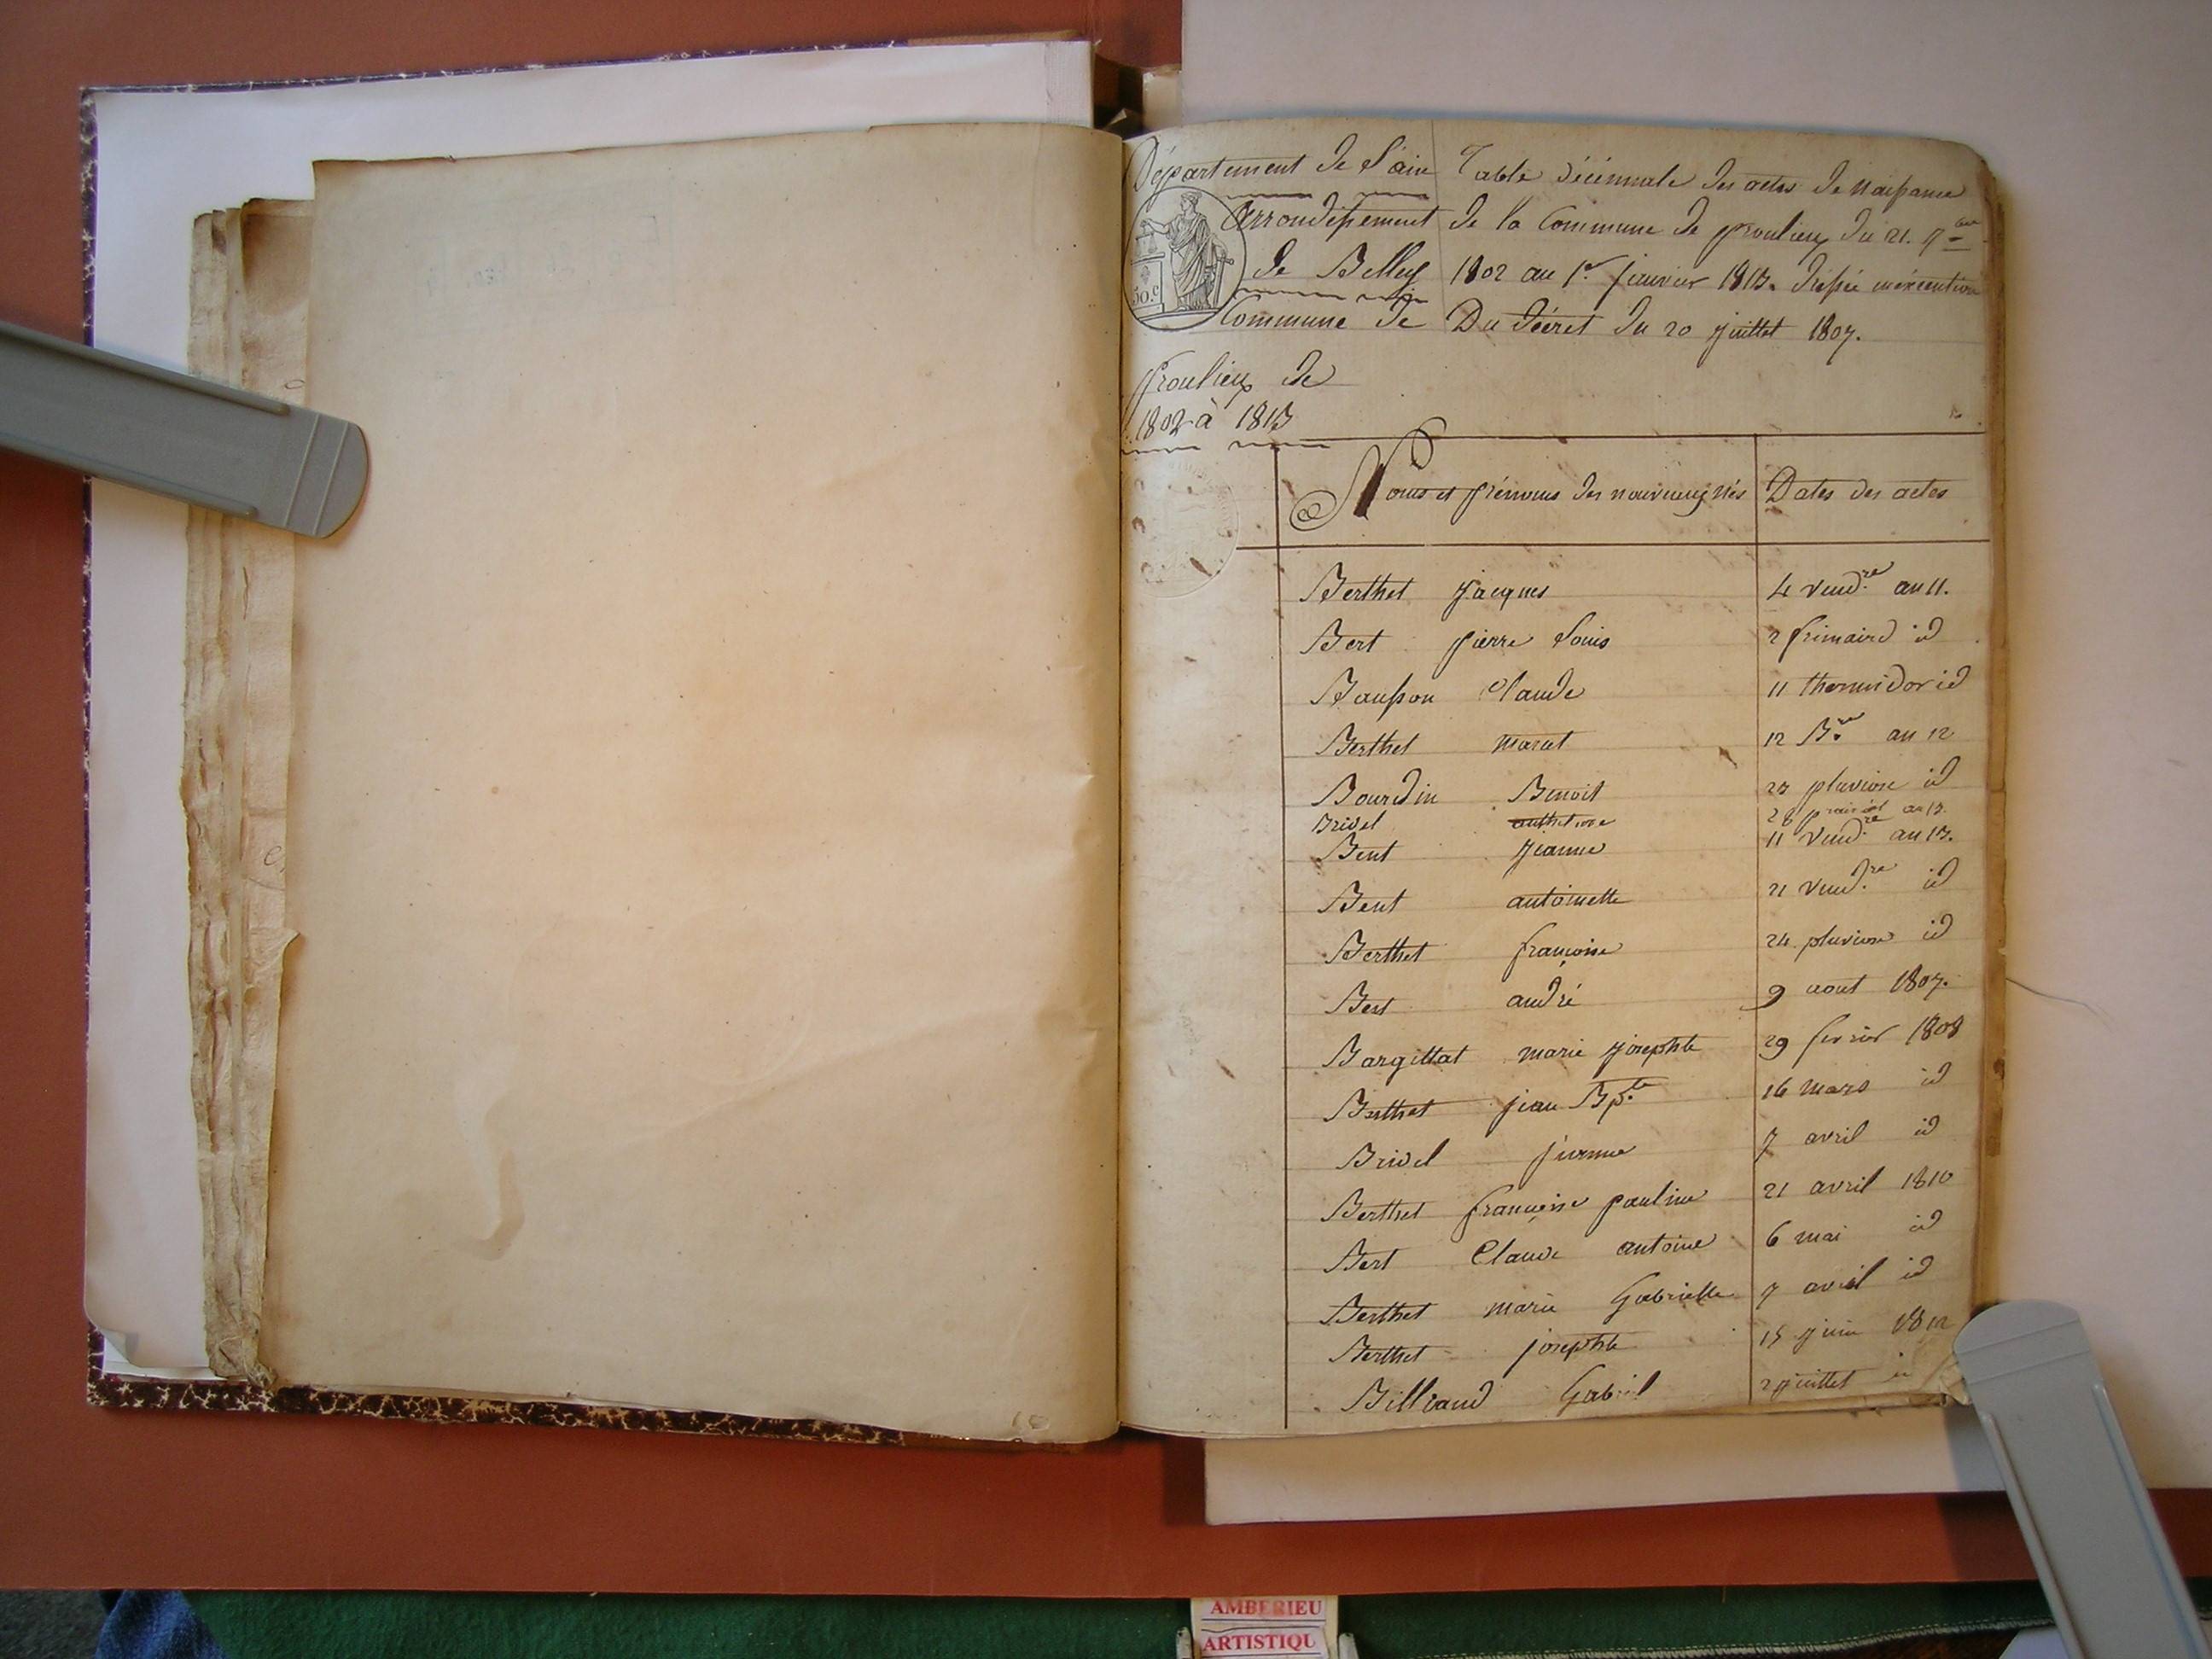 Département de l'ain
Arrondissement
de Belley
Commune de
proulieu de
1802 à 1813
50.c
Table décennale des actes de Naissance
de la Commune de proulieu du 21. 7bre
1802 au 1er janvier 1813. dressée en éxécution
Du décret du 20 juillet 1807.
Noms et prénoms des nouveaux nés Dates des actes
Berthet jacques 4 vendre an 11.
Bert pierre louis 2 frimaire id
Bausson Claude 11 thermidor id
Berthet marat 12 Bre an 12
Bourdin Benoit 23 pluviose id
Bridel anthelme 28 prairial an 13.
Bert jeanne 11 vendre an 13.
Bert antoinette 21 vendre id
Berthet françoise 24 pluviose id
Bert andré 9 aout 1807.
Bargillat marie josephte 29 fevrier 1808
Berthet jean Bpte 16 mars id
Bridel 7 avril id
Berthet françoise pauline 21 avril 1810
Bert Claude antoine 6 mai id
Berthet marie Gabrielle 7 avril id
Berthet josephte 15 juin 1812
Billiaud Gabriel juillet id
AMBERIEU
ARTISTIQU